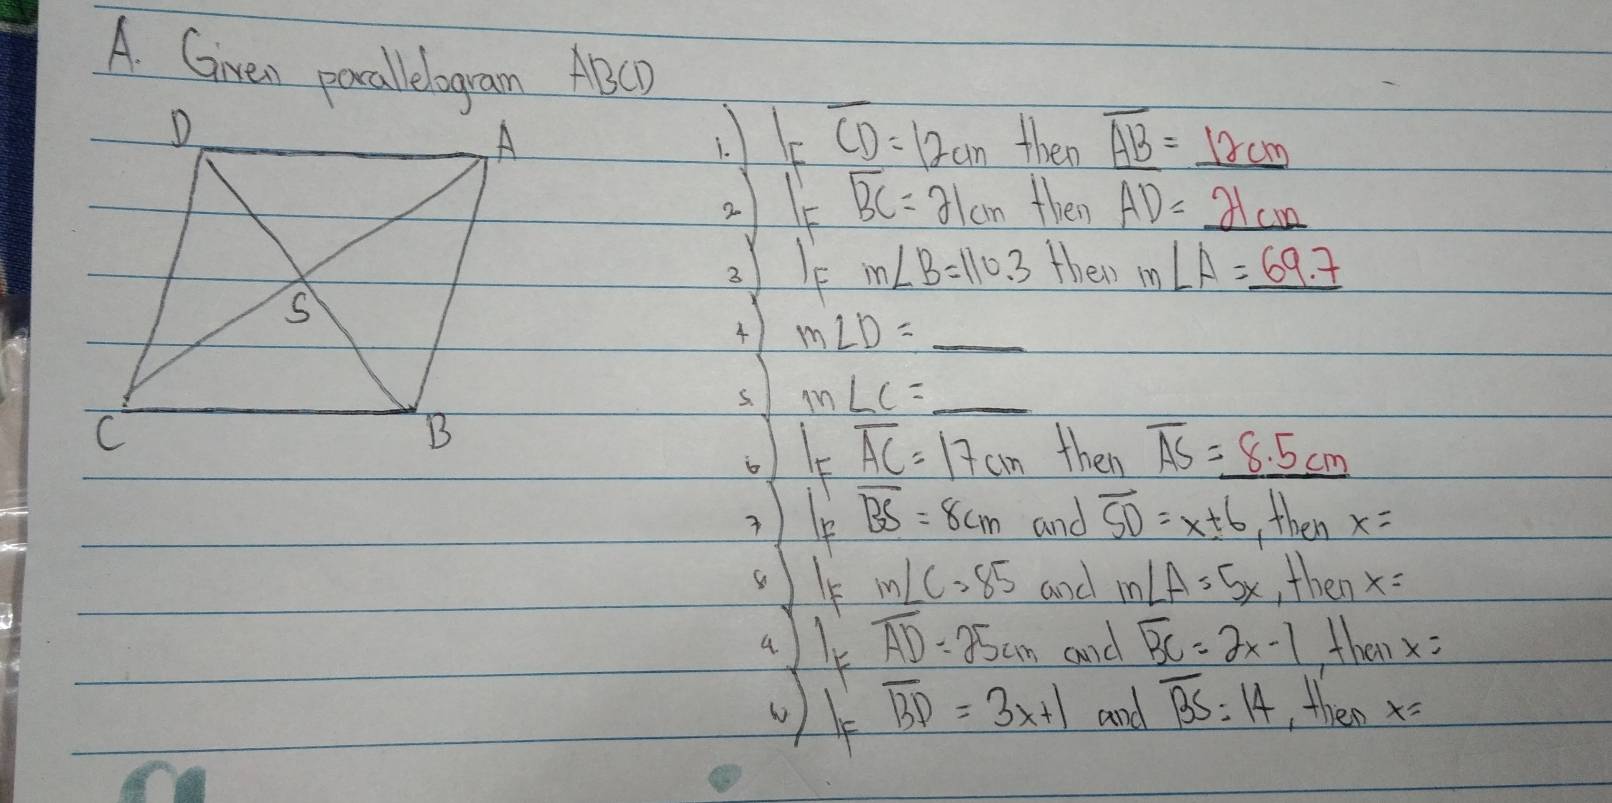 A. Given parallelogram ABCD
D A
S
C B
1.) If CD = 12cm then AB = 12cm
2) If BC = 21cm then AD = 21cm
3) If m∠B=110.3 then m∠A = 69.7
4) m∠D = ____
5.) m∠C = ____
6) If AC = 17cm then AS = 8.5cm
7) If BS = 8cm and SD = x+6, then x=
8) If m∠C = 85 and m∠A = 5x, then x=
9.) If AD = 25cm and BC = 2x-1, then x=
10) If BD = 3x+1 and BS = 14, then x=